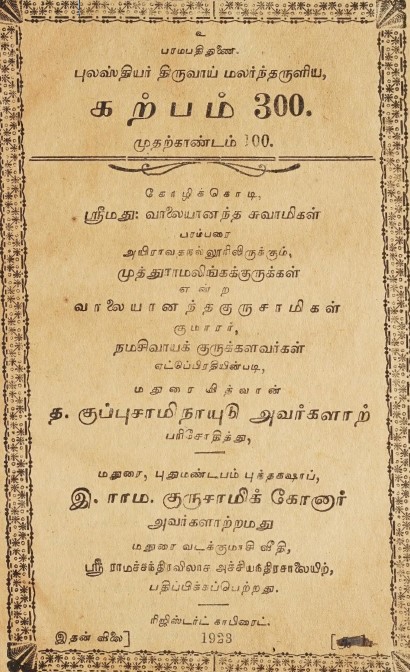 உ
பரமபதிதுணை.
புலஸ்தியர் திருவாய் மலர்ந்தருளிய,
கற்பம் 300.
முதற்காண்டம் 100.
கோழிக்கொடி,
ஸ்ரீமது: வாலையானந்த சுவாமிகள்
பரம்பரை
அயிராவதநல்லூரிலிருக்கும்,
முத்துராமலிங்கக்குருக்கள்
என்ற
வாலையானந்தகுருசாமிகள்
குமாரர்,
நமசிவாயக் குருக்களவர்கள்
ஏட்டுப்பிரதியின்படி,
மதுரை வித்வான்
த. குப்புசாமிநாயுடு அவர்களாற்
பரிசோதித்து,
மதுரை, புதுமண்டபம் புக்தகஷாப்,
இ. ராம. குருசாமிக் கோனார்
அவர்களாற்றமது
மதுரை வடக்குமாசி வீதி,
ஸ்ரீ ராமச்சந்திரவிலாச அச்சியந்திரசாலையிற்,
பதிப்பிக்கப்பெற்றது.
ரிஜிஸ்டர்ட் காபிரைட்.
இதன் விலை] 1923 [